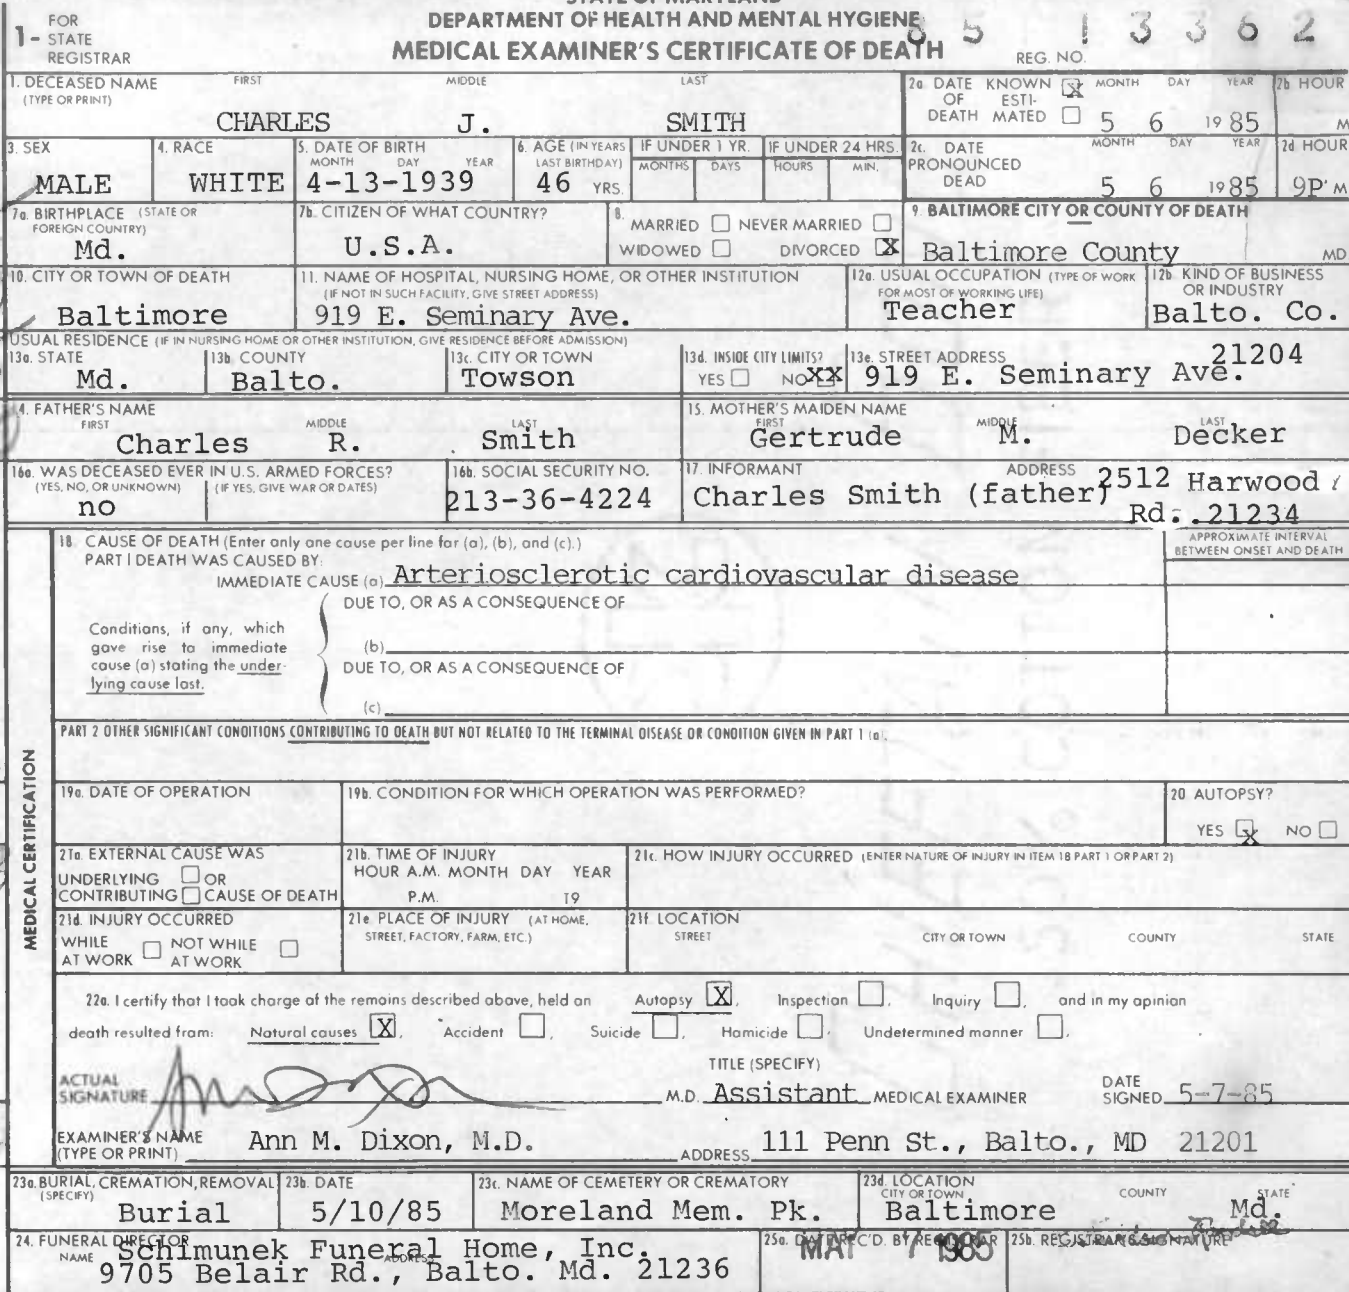 DEPARTMENT OF HEALTH AND MENTAL HYGIENE
1- FOR STATE REGISTRAR
MEDICAL EXAMINER'S CERTIFICATE OF DEATH
REG. NO. 85 13362
1. DECEASED NAME (TYPE OR PRINT) FIRST MIDDLE LAST
CHARLES J. SMITH
2a. DATE OF DEATH KNOWN X ESTIMATED MONTH DAY YEAR 5 6 1985
2b HOUR M
3. SEX MALE
4. RACE WHITE
5. DATE OF BIRTH MONTH DAY YEAR 4-13-1939
6. AGE (IN YEARS LAST BIRTHDAY) 46 YRS.
IF UNDER 1 YR. MONTHS DAYS
IF UNDER 24 HRS. HOURS MIN.
2c. DATE PRONOUNCED DEAD MONTH DAY YEAR 5 6 1985
2d HOUR 9P M
7a. BIRTHPLACE (STATE OR FOREIGN COUNTRY) Md.
7b. CITIZEN OF WHAT COUNTRY? U.S.A.
8. MARRIED NEVER MARRIED
WIDOWED DIVORCED X
9. BALTIMORE CITY OR COUNTY OF DEATH
Baltimore County MD
10. CITY OR TOWN OF DEATH
Baltimore
11. NAME OF HOSPITAL, NURSING HOME, OR OTHER INSTITUTION
(IF NOT IN SUCH FACILITY, GIVE STREET ADDRESS)
919 E. Seminary Ave.
12a. USUAL OCCUPATION (TYPE OF WORK FOR MOST OF WORKING LIFE)
Teacher
12b. KIND OF BUSINESS OR INDUSTRY
Balto. Co.
USUAL RESIDENCE (IF IN NURSING HOME OR OTHER INSTITUTION, GIVE RESIDENCE BEFORE ADMISSION)
13a. STATE Md.
13b COUNTY Balto.
13c. CITY OR TOWN Towson
13d. INSIDE CITY LIMITS? YES NO XX
13e. STREET ADDRESS 21204
919 E. Seminary Ave.
14. FATHER'S NAME FIRST MIDDLE LAST
Charles R. Smith
15. MOTHER'S MAIDEN NAME FIRST MIDDLE LAST
Gertrude M. Decker
16a. WAS DECEASED EVER IN U.S. ARMED FORCES?
(YES, NO, OR UNKNOWN) (IF YES, GIVE WAR OR DATES)
no
16b. SOCIAL SECURITY NO.
213-36-4224
17. INFORMANT ADDRESS
Charles Smith (father) 2512 Harwood
Rd. 21234
18. CAUSE OF DEATH (Enter only one cause per line for (a), (b), and (c).)
APPROXIMATE INTERVAL BETWEEN ONSET AND DEATH
PART I DEATH WAS CAUSED BY:
IMMEDIATE CAUSE (a) Arteriosclerotic cardiovascular disease
DUE TO, OR AS A CONSEQUENCE OF
Conditions, if any, which
gave rise to immediate
cause (a) stating the under-
lying cause last.
(b)
DUE TO, OR AS A CONSEQUENCE OF
(c)
PART 2 OTHER SIGNIFICANT CONDITIONS CONTRIBUTING TO DEATH BUT NOT RELATED TO THE TERMINAL DISEASE OR CONDITION GIVEN IN PART 1 (a).
MEDICAL CERTIFICATION
19a. DATE OF OPERATION
19b. CONDITION FOR WHICH OPERATION WAS PERFORMED?
20 AUTOPSY?
YES X NO
21a. EXTERNAL CAUSE WAS
UNDERLYING OR
CONTRIBUTING CAUSE OF DEATH
21b. TIME OF INJURY
HOUR A.M. MONTH DAY YEAR
P.M. 19
21c. HOW INJURY OCCURRED (ENTER NATURE OF INJURY IN ITEM 18 PART 1 OR PART 2)
21d. INJURY OCCURRED
WHILE AT WORK NOT WHILE AT WORK
21e PLACE OF INJURY (AT HOME, STREET, FACTORY, FARM, ETC.)
21f. LOCATION
STREET CITY OR TOWN COUNTY STATE
22a. I certify that I took charge of the remains described above, held an Autopsy X, Inspection, Inquiry, and in my opinion
death resulted from: Natural causes X, Accident, Suicide, Homicide, Undetermined manner.
TITLE (SPECIFY)
ACTUAL SIGNATURE M.D. Assistant MEDICAL EXAMINER
DATE SIGNED 5-7-85
EXAMINER'S NAME (TYPE OR PRINT) Ann M. Dixon, M.D.
ADDRESS 111 Penn St., Balto., MD 21201
23a. BURIAL, CREMATION, REMOVAL (SPECIFY)
Burial
23b. DATE
5/10/85
23c. NAME OF CEMETERY OR CREMATORY
Moreland Mem. Pk.
23d. LOCATION CITY OR TOWN COUNTY STATE
Baltimore Md.
24. FUNERAL DIRECTOR NAME ADDRESS
Schimunek Funeral Home, Inc.
9705 Belair Rd., Balto. Md. 21236
25a. DATE REC'D. BY REGISTRAR
MAY 7 1985
25b. REGISTRAR'S SIGNATURE